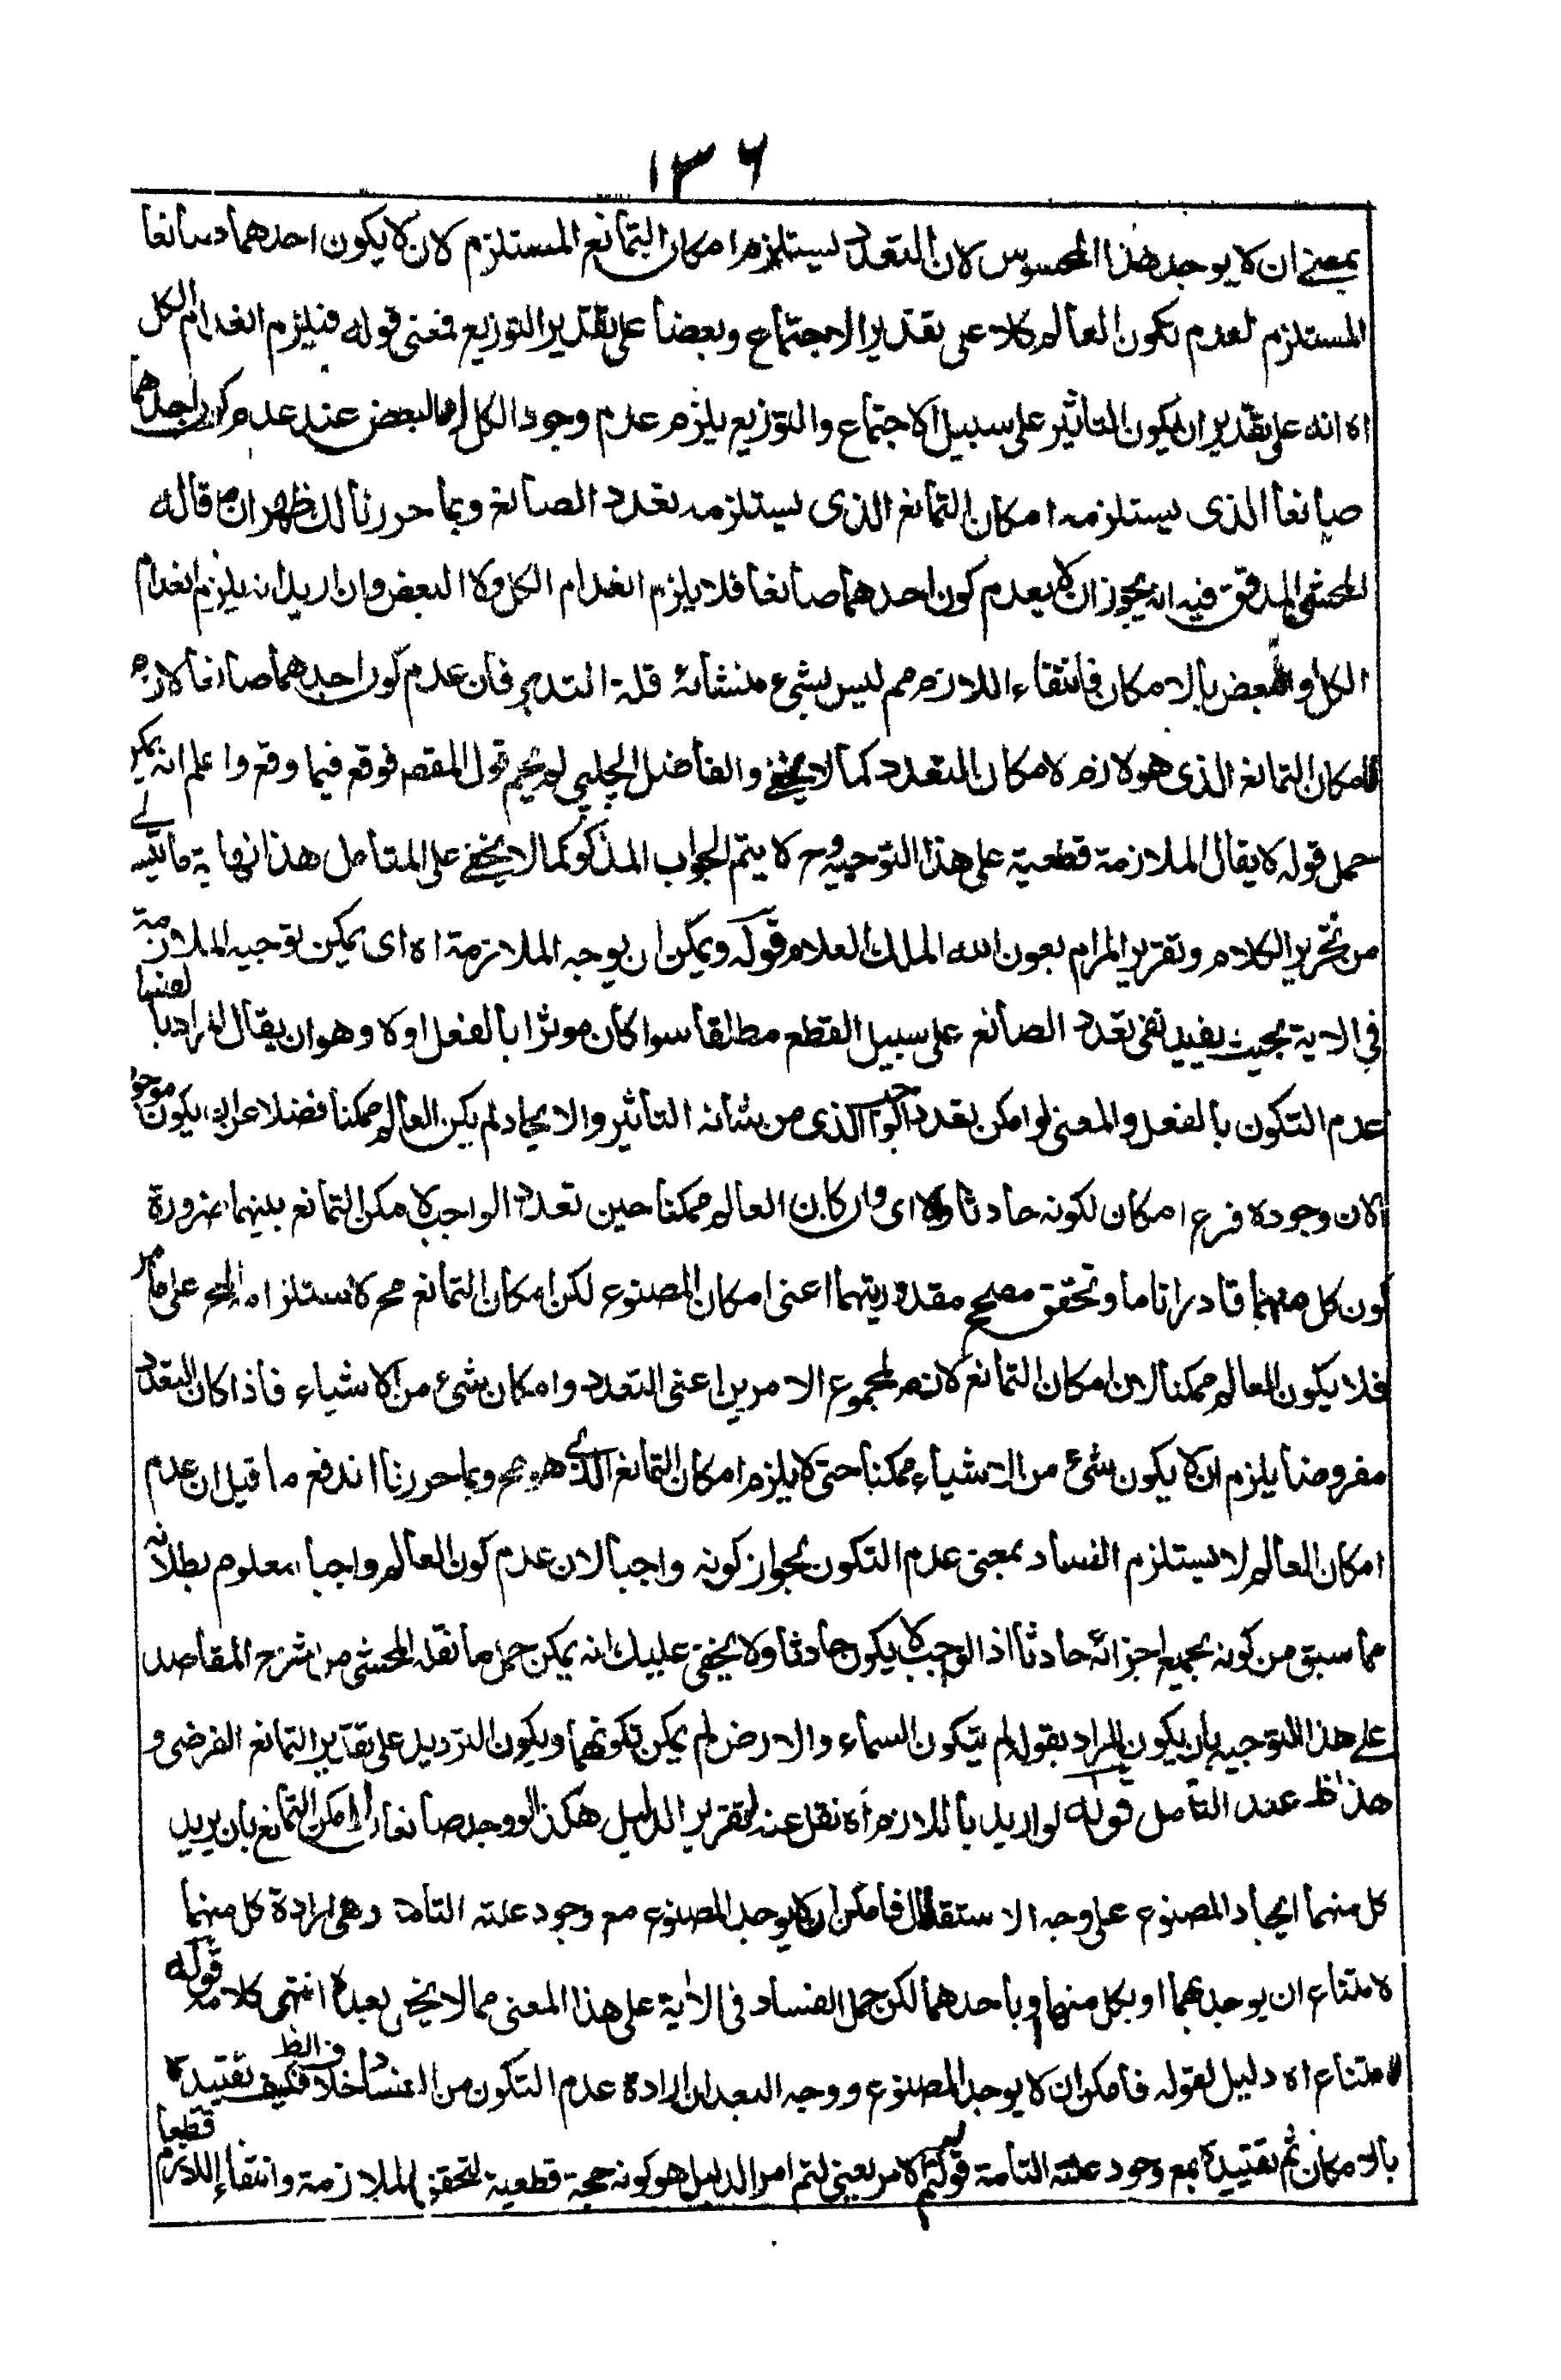 ١٣٦
بمعنى ان لا يوجد هذا المحسوس لان التعدد يستلزم امكان التمانع المستلزم لان لا يكون احدهما صانعا
المستلزم لعدم تكون العالم كلا على تقدير الاجتماع وبعضا على تقدير التوزيع فمعنى قوله فيلزم انعدام الكل
اه انه على تقدير ان يكون التاثير على سبيل الاجتماع والتوزيع يلزم عدم وجود الكل او البعض عند عدم كون احدهما
صانعا الذى يستلزمه امكان التمانع الذى يستلزمه تعدد الصانع وبما حررنا لك ظهر ان ما قاله
المحشى المدقق فيه انه يجوز ان لا يعدم كون احدهما صانعا فلا يلزم انعدام الكل ولا البعض وان اريد انه يلزم انعدام
الكل والبعض بالامكان فانتفاء اللازم مم ليس بشىء منشائه قلة التدبر فان عدم كون احدهما صانعا لازم
لامكان التمانع الذى هو لازم لامكان التعدد كما لا يخفى والفاضل الچلپى لم يحم قول المقصد فوقع فيما وقع واعلم انه يمكن
حمل قوله لا يقال الملازمة قطعية على هذا التوجيه وح لا يتم الجواب المذكور كما لا يخفى على المتأمل هذا نهاية ما تيسر لى
من تحرير الكلام وتقرير المرام بعون الله الملك العلام قوله ويمكن ان يوجه الملازمة اه اى يمكن توجيه الملازمة
فى الاية بحيث يفيد نفى تعدد الصانع على سبيل القطع مطلقا سوا كان موثرا بالفعل اولا وهو ان يقال المراد بالفساد
عدم التكون بالفعل والمعنى لو امكن تعدد الواجب الذى من شانه التأثير والايجاد لم يكن العالم ممكنا فضلا عن ان يكون موجودا
لان وجوده فرع امكان لكونه حادثا والا اى وان كان العالم ممكنا حين تعدد الواجب لامكن التمانع بينهما ضرورة
كون كل منهما قادرا تاما وتحقق مصحح مقدوريتهما اعنى امكان المصنوع لكن امكان التمانع مح لاستلزامه المح على ما مر
فلا يكون العالم ممكنا لان امكان التمانع لازم لمجموع الامرين اعنى التعدد وامكان شىء من الاشياء فاذا كان التعدد
مفروضا يلزم ان لا يكون شىء من الاشياء ممكنا حتى لا يلزم امكان التمانع الذى هو مح وبما حررنا اندفع ما قيل ان عدم
امكان العالم لا يستلزم الفساد بمعنى عدم التكون لجواز كونه واجبا لان عدم كون العالم واجبا معلوم بطلانه
مما سبق من كونه بجميع اجزائه حادثا اذ الواجب لا يكون حادثا ولا يخفى عليك انه يمكن حمل ما نقله المحشى من شرح المقاصد
على هذا التوجيه بان يكون المراد بقوله لم يتكون السماء والارض لم يمكن تكونهما ويكون الترديد على تقدير التمانع الفرضى و
هذا ظ عند التأمل قوله لو اريد باللازم اه نقل عنه لتقرير الدليل هكذا لو وجد صانعان لامكن التمانع بان يريد
كل منهما ايجاد المصنوع على وجه الاستقلال فامكن ان لا يوجد المصنوع مع وجود علته التامة وهى ارادة كل منهما
لامتناع ان يوجد بهما او بكل منهما او باحدهما لكن حمل الفساد فى الاية على هذا المعنى مما لا يخفى بعده انتهى كلامه قوله
لامتناع اه دليل لقوله فامكن ان لا يوجد المصنوع ووجه البعد ان ارادة عدم التكون من الفساد خلاف الظ فكيف تقييده
بالامكان ثم تقييده بمع وجود علته التامة قوله لتم الامر يعنى لتم امر الدليل هو كونه حجة قطعية لتحقق الملازمة وانتفاء اللازم قطعا